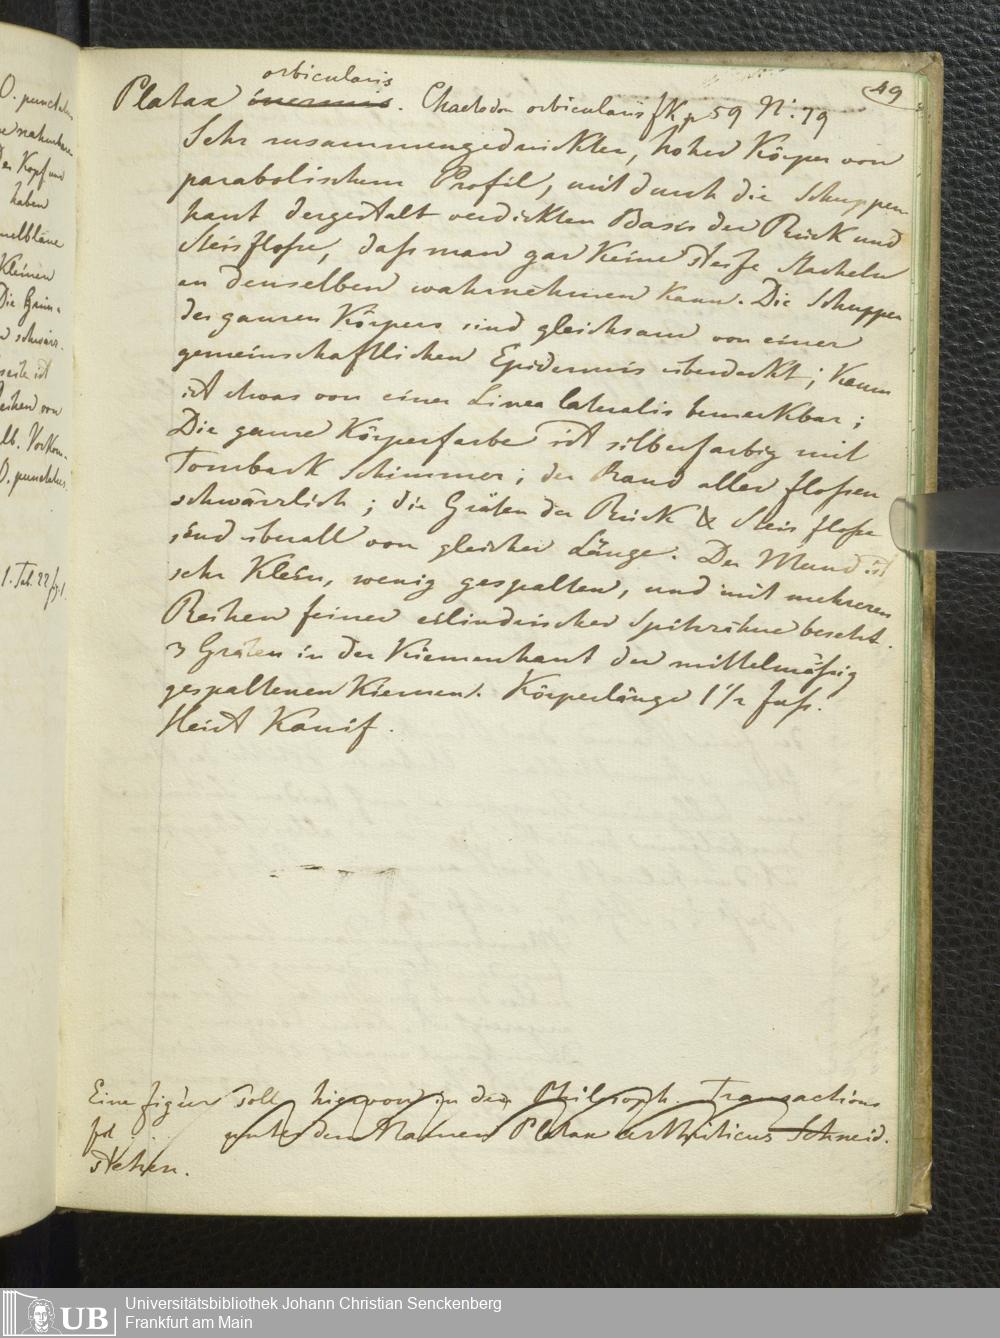 49
orbicularis
Platax inermis. Chaetodon orbicularis fK p 59 N: 79
Sehr zusammengedrückter, hoher Körper von
parabolischem Profil, mit durch die Schuppen
haut dergestalt verdickten Basis der Rück und
Steisflosse, daſs man gar keine steife Stacheln
an denselben wahrnehmen kann. Die Schuppen
des ganzen Körpers sind gleichsam von einer
gemeinschaftlichen Epidermis überdeckt; kaum
ist etwas von einer Linea lateralis bemerkbar;
Die ganze Körperfarbe ist silberfarbig mit
Tomback Schimmer; der Rand aller flossen
schwärzlich; die Gräten der Rück & Steis flosse
sind überall von gleicher Länge. Der Mund ist
sehr klein, wenig gespalten, und mit mehreren
Reihen feiner cilindrischer Spitzzähne besetzt.
3 Gräten in der Kiemenhaut der mittelmäſsig
gespaltenen Kiemen. Körperlänge 1 1/2 fuſs.
Heist Kanif.
Eine figur soll hiervon in den Philosoph. Transactions
unter dem Namen Platax arthriticus Schneid.
stehen.
O. punctatus
der Kopf und
haben
Kleinen
Die Grün-
schwärz-
seite ist
Reihen von
lb. Vorkom-
O. punctatus.
1. Tab. 22 fig. 1.
UB
Universitätsbibliothek Johann Christian Senckenberg
Frankfurt am Main